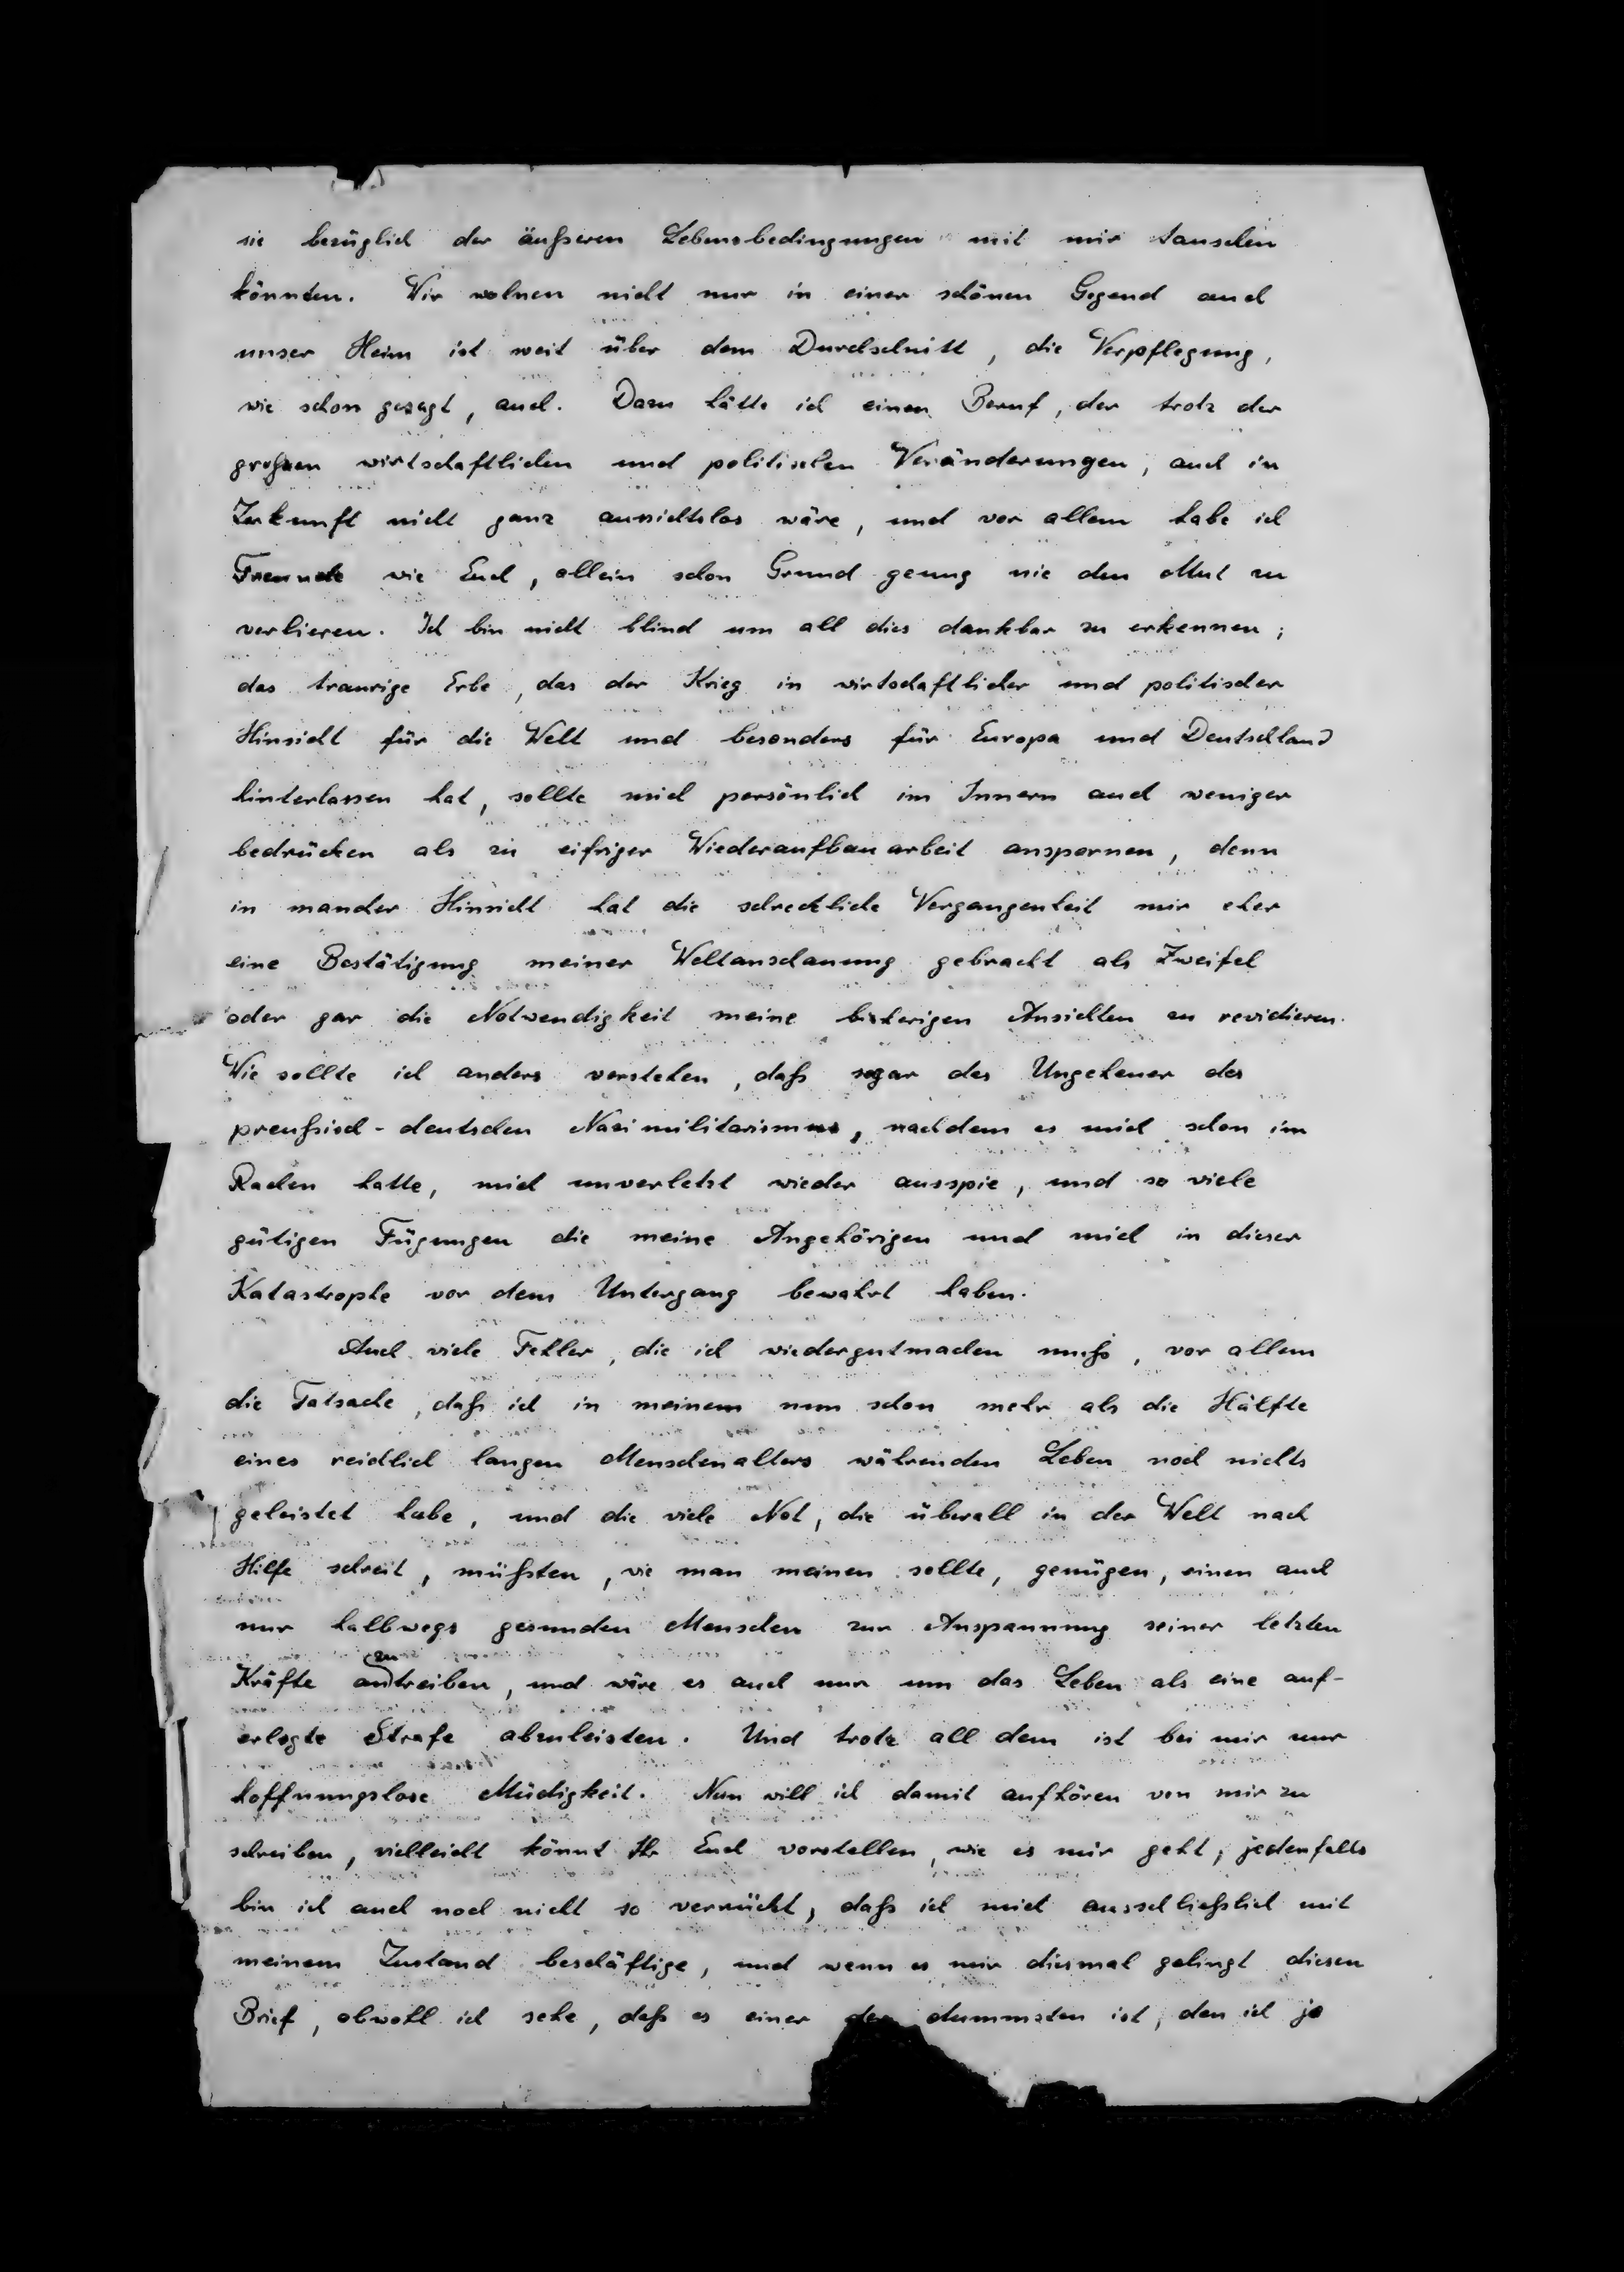 sie bezüglich der äußeren Lebensbedingungen mit mir tauschen
könnten. Wir wohnen nicht nur in einer schönen Gegend auch
unser Heim ist weit über dem Durchschnitt, die Verpflegung,
wie schon gesagt, auch. Dazu hätte ich einen Beruf, der trotz der
großen wirtschaftlichen und politischen Veränderungen, auch in
Zukunft nicht ganz aussichtslos wäre, und vor allem habe ich
Freunde wie Euch, allein schon Grund genug nie den Mut zu
verlieren. Ich bin nicht blind um all dies dankbar zu erkennen;
das traurige Erbe, das der Krieg in wirtschaftlicher und politischer
Hinsicht für die Welt und besonders für Europa und Deutschland
hinterlassen hat, sollte mich persönlich im Innern auch weniger
bedrücken als zu eifriger Wiederaufbauarbeit anspornen, denn
in mancher Hinsicht hat die schreckliche Vergangenheit mir eher
eine Bestätigung meiner Weltanschauung gebracht als Zweifel
oder gar die Notwendigkeit meine bisherigen Ansichten zu revidieren.
Wie sollte ich anders verstehen, daß sogar das Ungeheuer des
preußisch-deutschen Nazimilitarismus, nachdem es mich schon im
Rachen hatte, mich unverletzt wieder ausspie, und so viele
gütigen Fügungen die meine Angehörigen und mich in dieser
Katastrophe vor dem Untergang bewahrt haben.
Auch viele Fehler, die ich wiedergutmachen muß, vor allem
die Tatsache, daß ich in meinem nun schon mehr als die Hälfte
eines reichlich langen Menschenalters währenden Leben noch nichts
geleistet habe, und die viele Not, die überall in der Welt nach
Hilfe schreit, müßten, wie man meinen sollte, genügen, einen auch
nur halbwegs gesunden Menschen zur Anspannung seiner letzten
Kräfte anzutreiben, und wäre es auch nur um das Leben als eine auf-
erlegte Strafe abzuleisten. Und trotz all dem ist bei mir nur
hoffnungslose Müdigkeit. Nun will ich damit aufhören von mir zu
schreiben, vielleicht könnt Ihr Euch vorstellen, wie es mir geht; jedenfalls
bin ich auch noch nicht so verrückt, daß ich mich ausschließlich mit
meinem Zustand beschäftige, und wenn es mir diesmal gelingt diesen
Brief, obwohl ich sehe, daß es einer der dummsten ist, den ich je